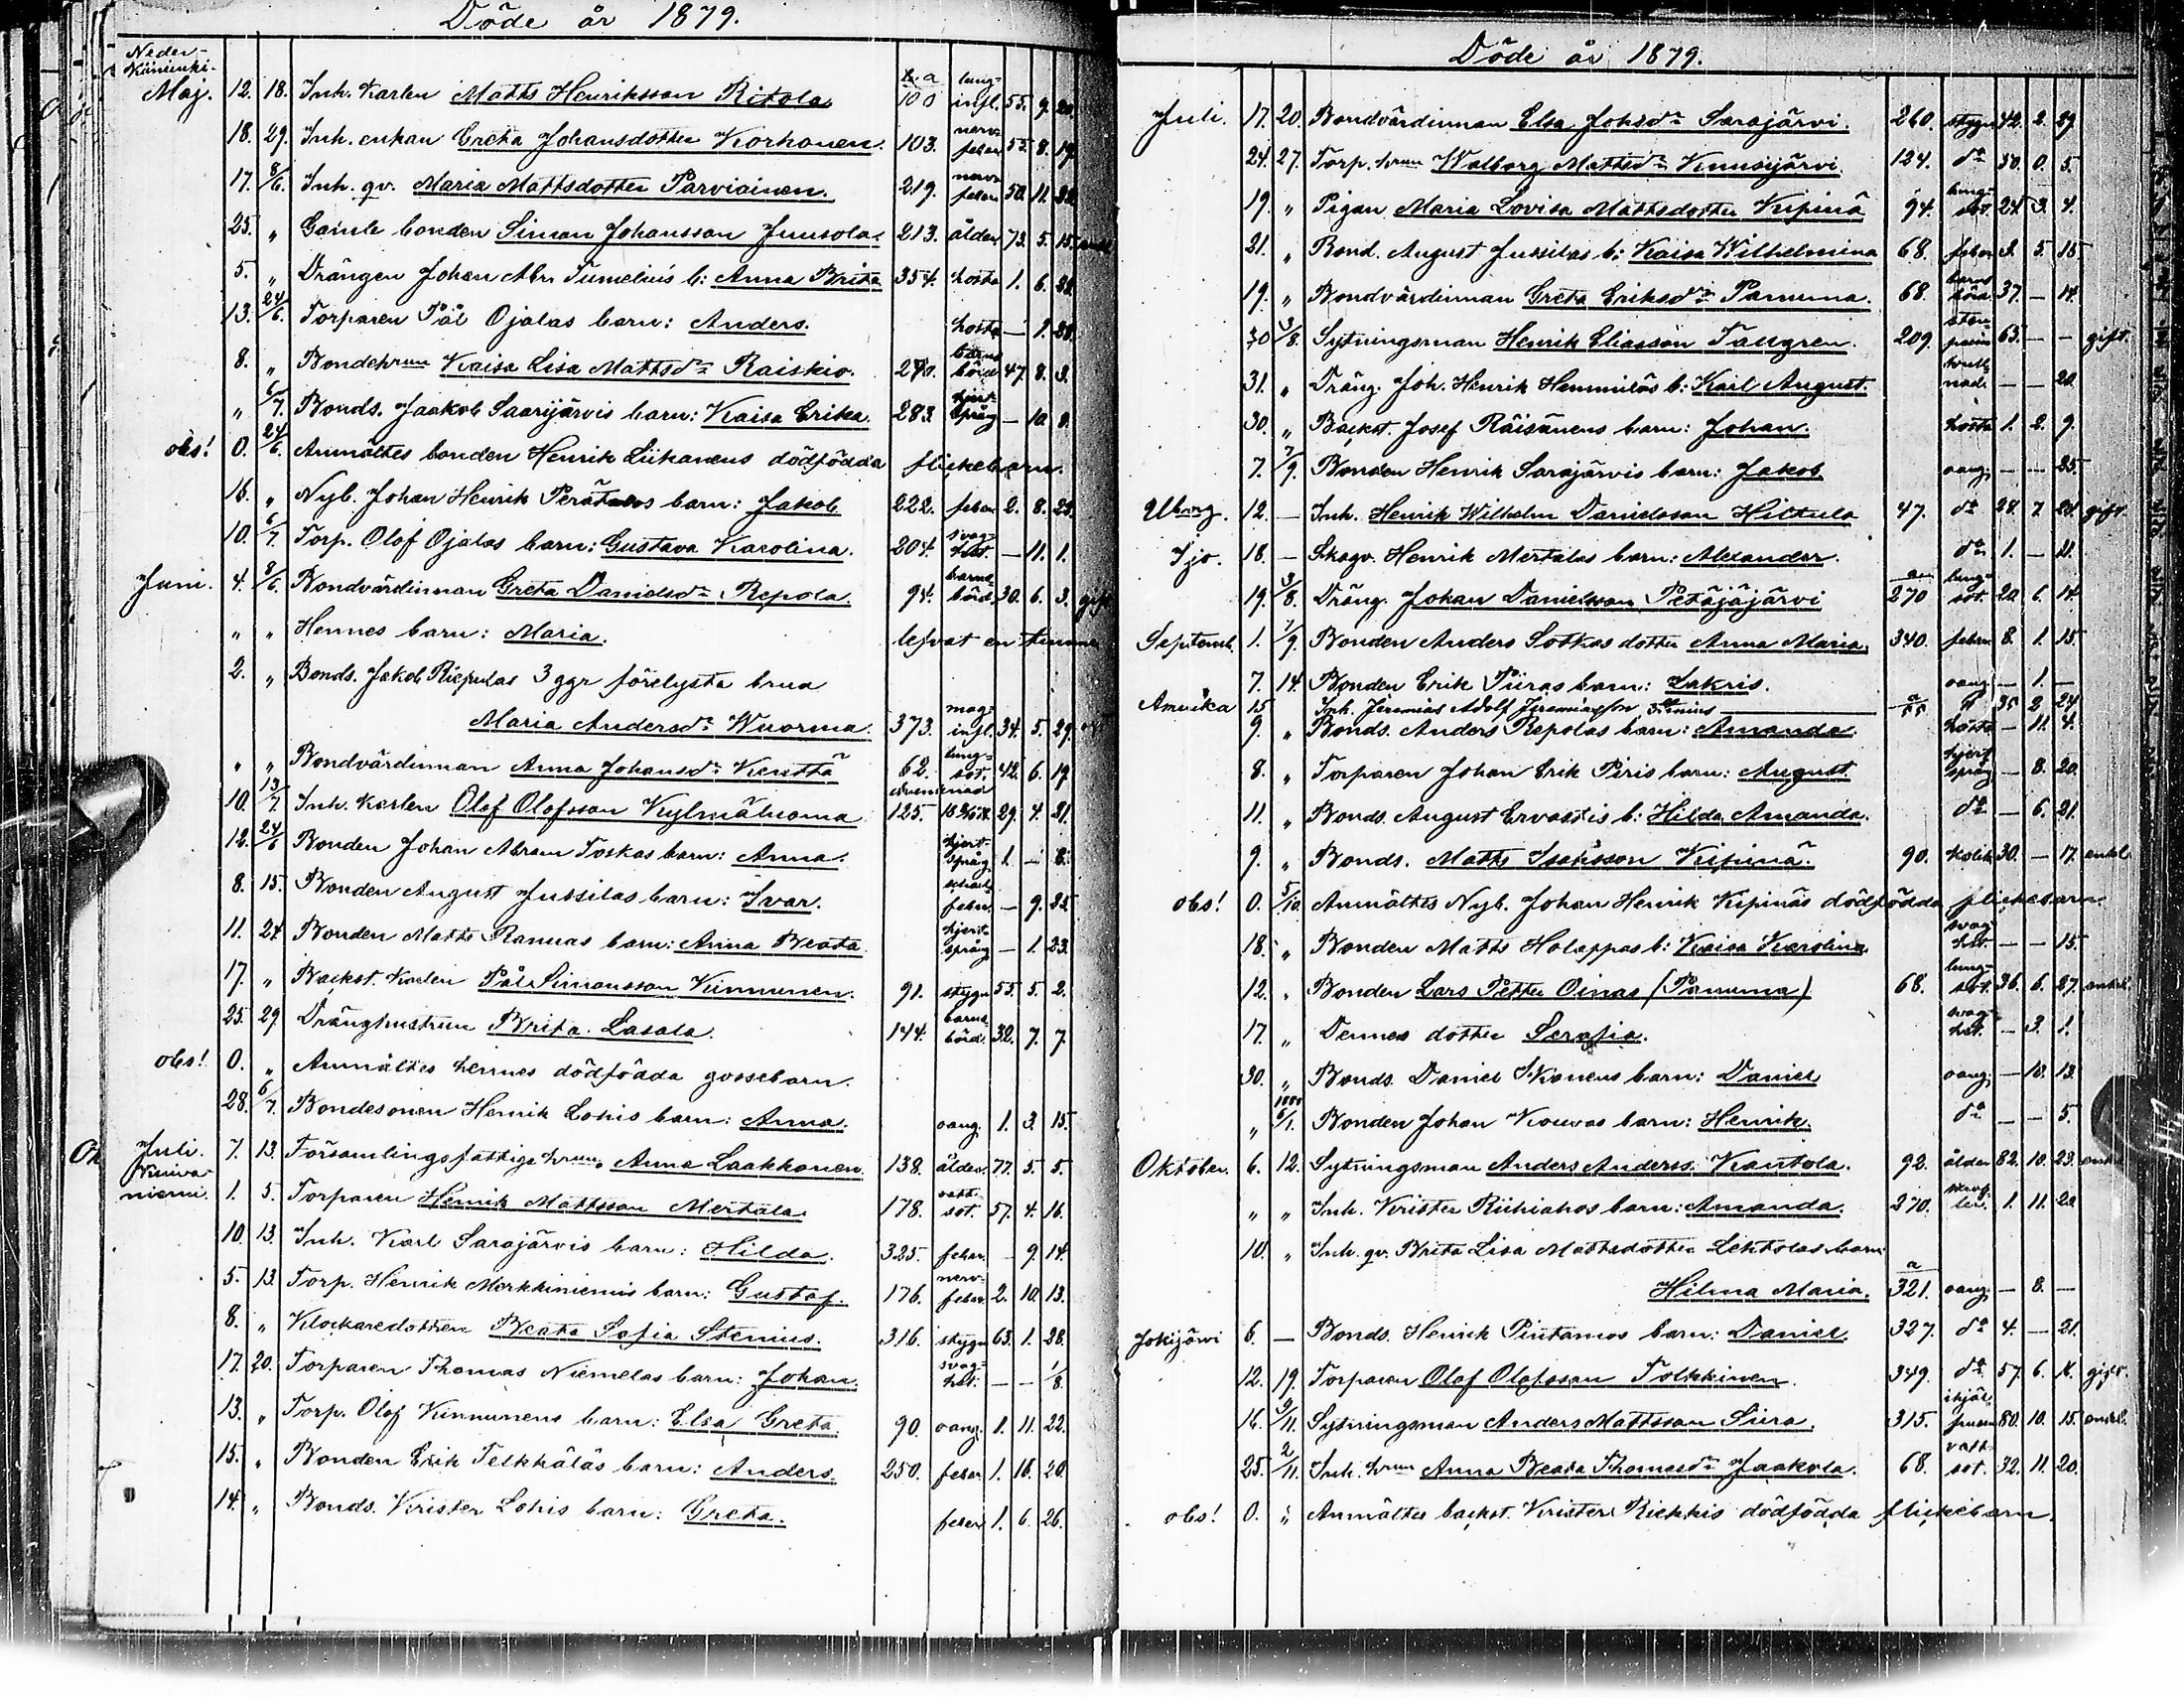 Döde år 1879.
Neder-
Kiiminki.
Maj. 12. 18. Inh. karlen Matts Henriksson Ritola 100 lung-infl. 55. 9. 20.
18. 29. Inh. enkan Greta Johansdotter Korhonen. 103. nerv-feber 55. 8. 19.
17. 8/6. Inh. qv. Maria Mattsdotter Parviainen. 219. nerv-feber 50. 11.
25. " Gamle bonden Simon Johansson Juusola. 213. ålder 73. 5. 15.
5. " Drängen Johan Abr. Tumelius b: Anna Brita 354. hosta 1. 6. 28.
13. 24/6. Torparen Pål Ojalas barn: Anders. hosta — 1. 28.
8. " Bondehrun Kaisa Lisa Mattsdr Raiskio. 270. barns-börd 47. 8. 3.
" 6/7. Bonds. Jaakob Saarijärvis barn: Kaisa Erika. 283. hjert-språng — 10. 8.
obs! 0. 24/6. Anmältes bonden Henrik Liikanens dödfödda flickebarn.
16. " Nyb. Johan Henrik Perätalos barn: Jakob 222. feber 2. 8. 23.
10. 6/7. Torp. Olof Ojalas barn: Gustava Karolina. 204. svag-het. — 11. 1.
Juni. 4. 8/6. Bondvärdinnan Greta Danielsdr Repola. 94. barns-börd. 30. 6. 3. gift
" " Hennes barn: Maria. lefvat en timma
2. " Bonds. Jakob Riepulas 3 ggr förelysta brud
Maria Andersdr Wuorma. 373. mag-infl. 34. 5. 29.
" " Bondvärdinnan Anna Johansdr Kenttä 62. lung-sot. 42. 6. 19.
10. 13/7. Inh. karlen Olof Olofsson Kylmäluoma 125. 29. 4. 21.
12. 24/6 Bonden Johan Abram Toskas barn: Anna. hjert-språng 1. — 6.
8. 15. Bonden August Jussilas barn: Ivar. feber. — 9. 25.
11. 24 Bonden Matts Rannas barn: Anna Beata. hjert-språng — 1. 23.
17. " Backst. karlen Pål Simonsson Kinnunen. 91. stygn 55. 5. 2.
25. 29. Dränghustrun Brita Lasala. 144. barns-börd. 32. 7. 7.
obs! 0. " Anmältes hennes dödfödda gossebarn.
28. 6/7. Bondesonen Henrik Lohis barn: Anna. oang. 1. 3. 15.
Juli. 7. 13. Församlingsfattige hrun. Anna Laakkonen. 138. ålder. 77. 5. 5.
Niniva-
niemi. 1. 5. Torparen Henrik Mattsson Mertala. 178. vatt-sot. 57. 4. 16.
10. 13. Inh. Karl Sarajärvis barn: Hilda. 325. feber. — 9. 14.
5. 13. Torp. Henrik Morkkiniemis barn: Gustaf. 176. nerv-feber 2. 10. 13.
8. " Klockaredottren Beata Sofia Stenius. 316. stygn 63. 1. 28.
17. 20. Torparen Thomas Niemelas barn: Johan. svag-het. — — 1/8.
13. " Torp. Olof Kinnunens barn: Elsa Greta. 90. oang. 1. 11. 22.
15. " Bonden Erik Telkkäläs barn: Anders. 250. feber 1. 10. 20.
14. " Bonds. Krister Lohis barn: Greta. feber 1. 6. 26.
Döde år 1879.
Juli. 17. 20. Bondvärdinnan Elsa Johsdr Sarajärvi. 260. stygn 42. 2. 29.
24. 27. Torp. hrun Walborg Mattsdr Kuusijärvi. 124. do 30. 0. 5.
19. " Pigan Maria Lovisa Mattsdotter Kipinä 94. lung-sot. 24. 3. 4.
21. " Bond. August Jussilas b: Kaisa Wilhelmina 68. feber 2. 5. 15.
19. " Bondvärdinnan Greta Eriksdr Pamuna. 68. barns-börd 37. — 14.
30 3/8. Sytningsman Henrik Eliasson Tallgren. 209. sten-passion 63. — — gift.
31. " Dräng. Joh. Henrik Hemmiläs b: Karl August. — — 20.
30. " Backst. Josef Räisänens barn: Johan. hosta 1. 2. 9.
7. 7/9. Bonden Henrik Sarajärvis barn: Jakob oang. — — 25.
Uborg. 12. — Inh. Henrik Wilhelm Danielsson Hiltula 47. do 28. 7 24. gift.
Ijo. 18. — Skogv. Henrik Mertalas barn: Alexander. do 1. — 21.
19. 3/8. Dräng. Johan Danielsson Petäjäjärvi 270 lung-sot. 20. 6. 14.
Septemb. 1. 7/9. Bonden Anders Sotkas dotter Anna Maria. 340. feber 8. 1. 15.
7. 14. Bonden Erik Piiras barn: Zakris. oang. — 1. —
Amerika 15 Inh. Jeremias Adolf Jeremiasson 35 2 24
9. " Bonds. Anders Repolas barn: Amanda. hosta — 11. 4.
8. " Torparen Johan Erik Piris barn: August. hjert-språng — 8. 20.
11. " Bonds. August Ervastis b: Hilda Amanda. do — 6. 21.
9. " Bonds. Matts Isaksson Kipinä. 90. kolik 30. — 17. enkl.
obs! 0. 5/10. Anmältes Nyb. Johan Henrik Kipinäs dödfödda flickebarn.
18. " Bonden Matts Holappas b: Kaisa Karolina. svag-het. — — 15.
12. " Bonden Lars Petter Oinas (Pamuna) 68. lung-sot. 36. 6. 27. enkl.
17. " Dennes dotter Serafia. svag-het. — 3. 1.
30. " Bonds. Daniel Ikonens barn: Daniel oang. — 10. 13.
" 1880 6/1. Bonden Johan Kouvas barn: Henrik. do — — 5.
Oktober. 6. 12. Sytningsman Anders Anderss. Kantola. 92. ålder 82. 10. 23. enkl
" " Inh. Krister Riihiahos barn: Amanda. 270. 1. 11. 20.
10. " Inh. qv. Brita Lisa Mattsdotter Lehtolas barn
Hilma Maria. 321. oang. — 8. —
Jokijärvi 6. — Bonds. Henrik Pintamos barn: Daniel. 327. do 4. — 21.
12. 19. Torparen Olof Olofsson Tolkkinen. 349. do 57. 6. 16. gift.
16. 9/11. Sytningsman Anders Mattsson Siira. 315. ihjäl-frusen 80. 10. 15. enkl.
25. 2/11. Inh. hrun Anna Beata Thomasdr Jaakola. 68. vatt-sot. 32. 11. 20.
obs! 0. " Anmältes backst. Krister Riekkis dödfödda flickebarn.